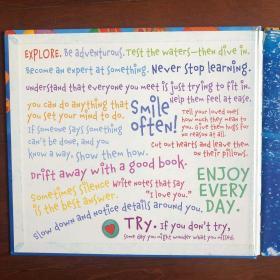 EXPLORE. Be adventurous. Test the waters—then dive in.
Become an expert at something. Never stop learning.
understand that everyone you meet is just trying to fit in.
Help them feel at ease.
you can do anything that
you set your mind to do.
Smile
often!
Tell your loved ones
how much they mean to
you. Give them hugs for
no reason at all.
If someone says something
can't be done, and you
know a way, show them how.
Cut out hearts and leave them
on their pillows.
Drift away with a good book.
Sometimes silence
is the best answer.
Write notes that say
"I love you."
ENJOY
EVERY
DAY.
Slow down and notice details around you.
TRY. If you don't try,
some day you might wonder what you missed.